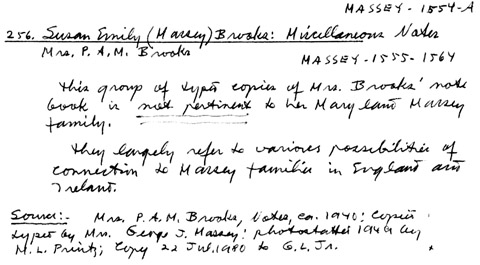 MASSEY-1554-A
256. Susan Emily (Massey) Brooks: Miscellaneous Notes
Mrs. P. A. M. Brooks
MASSEY-1555-1564
This group of typed copies of Mrs. Brooks' note
book is not pertinent to her Maryland Massey
family.
They largely refer to various possibilities of
connection to Massey families in England and
Ireland.
Source:- Mrs. P.A.M. Brooks, Notes, ca. 1940: copies
typed by Mrs. George J. Massey: photostatted 1949 by
M. L. Printz; Copy 22 Jul. 1980 to G.L. Jr.